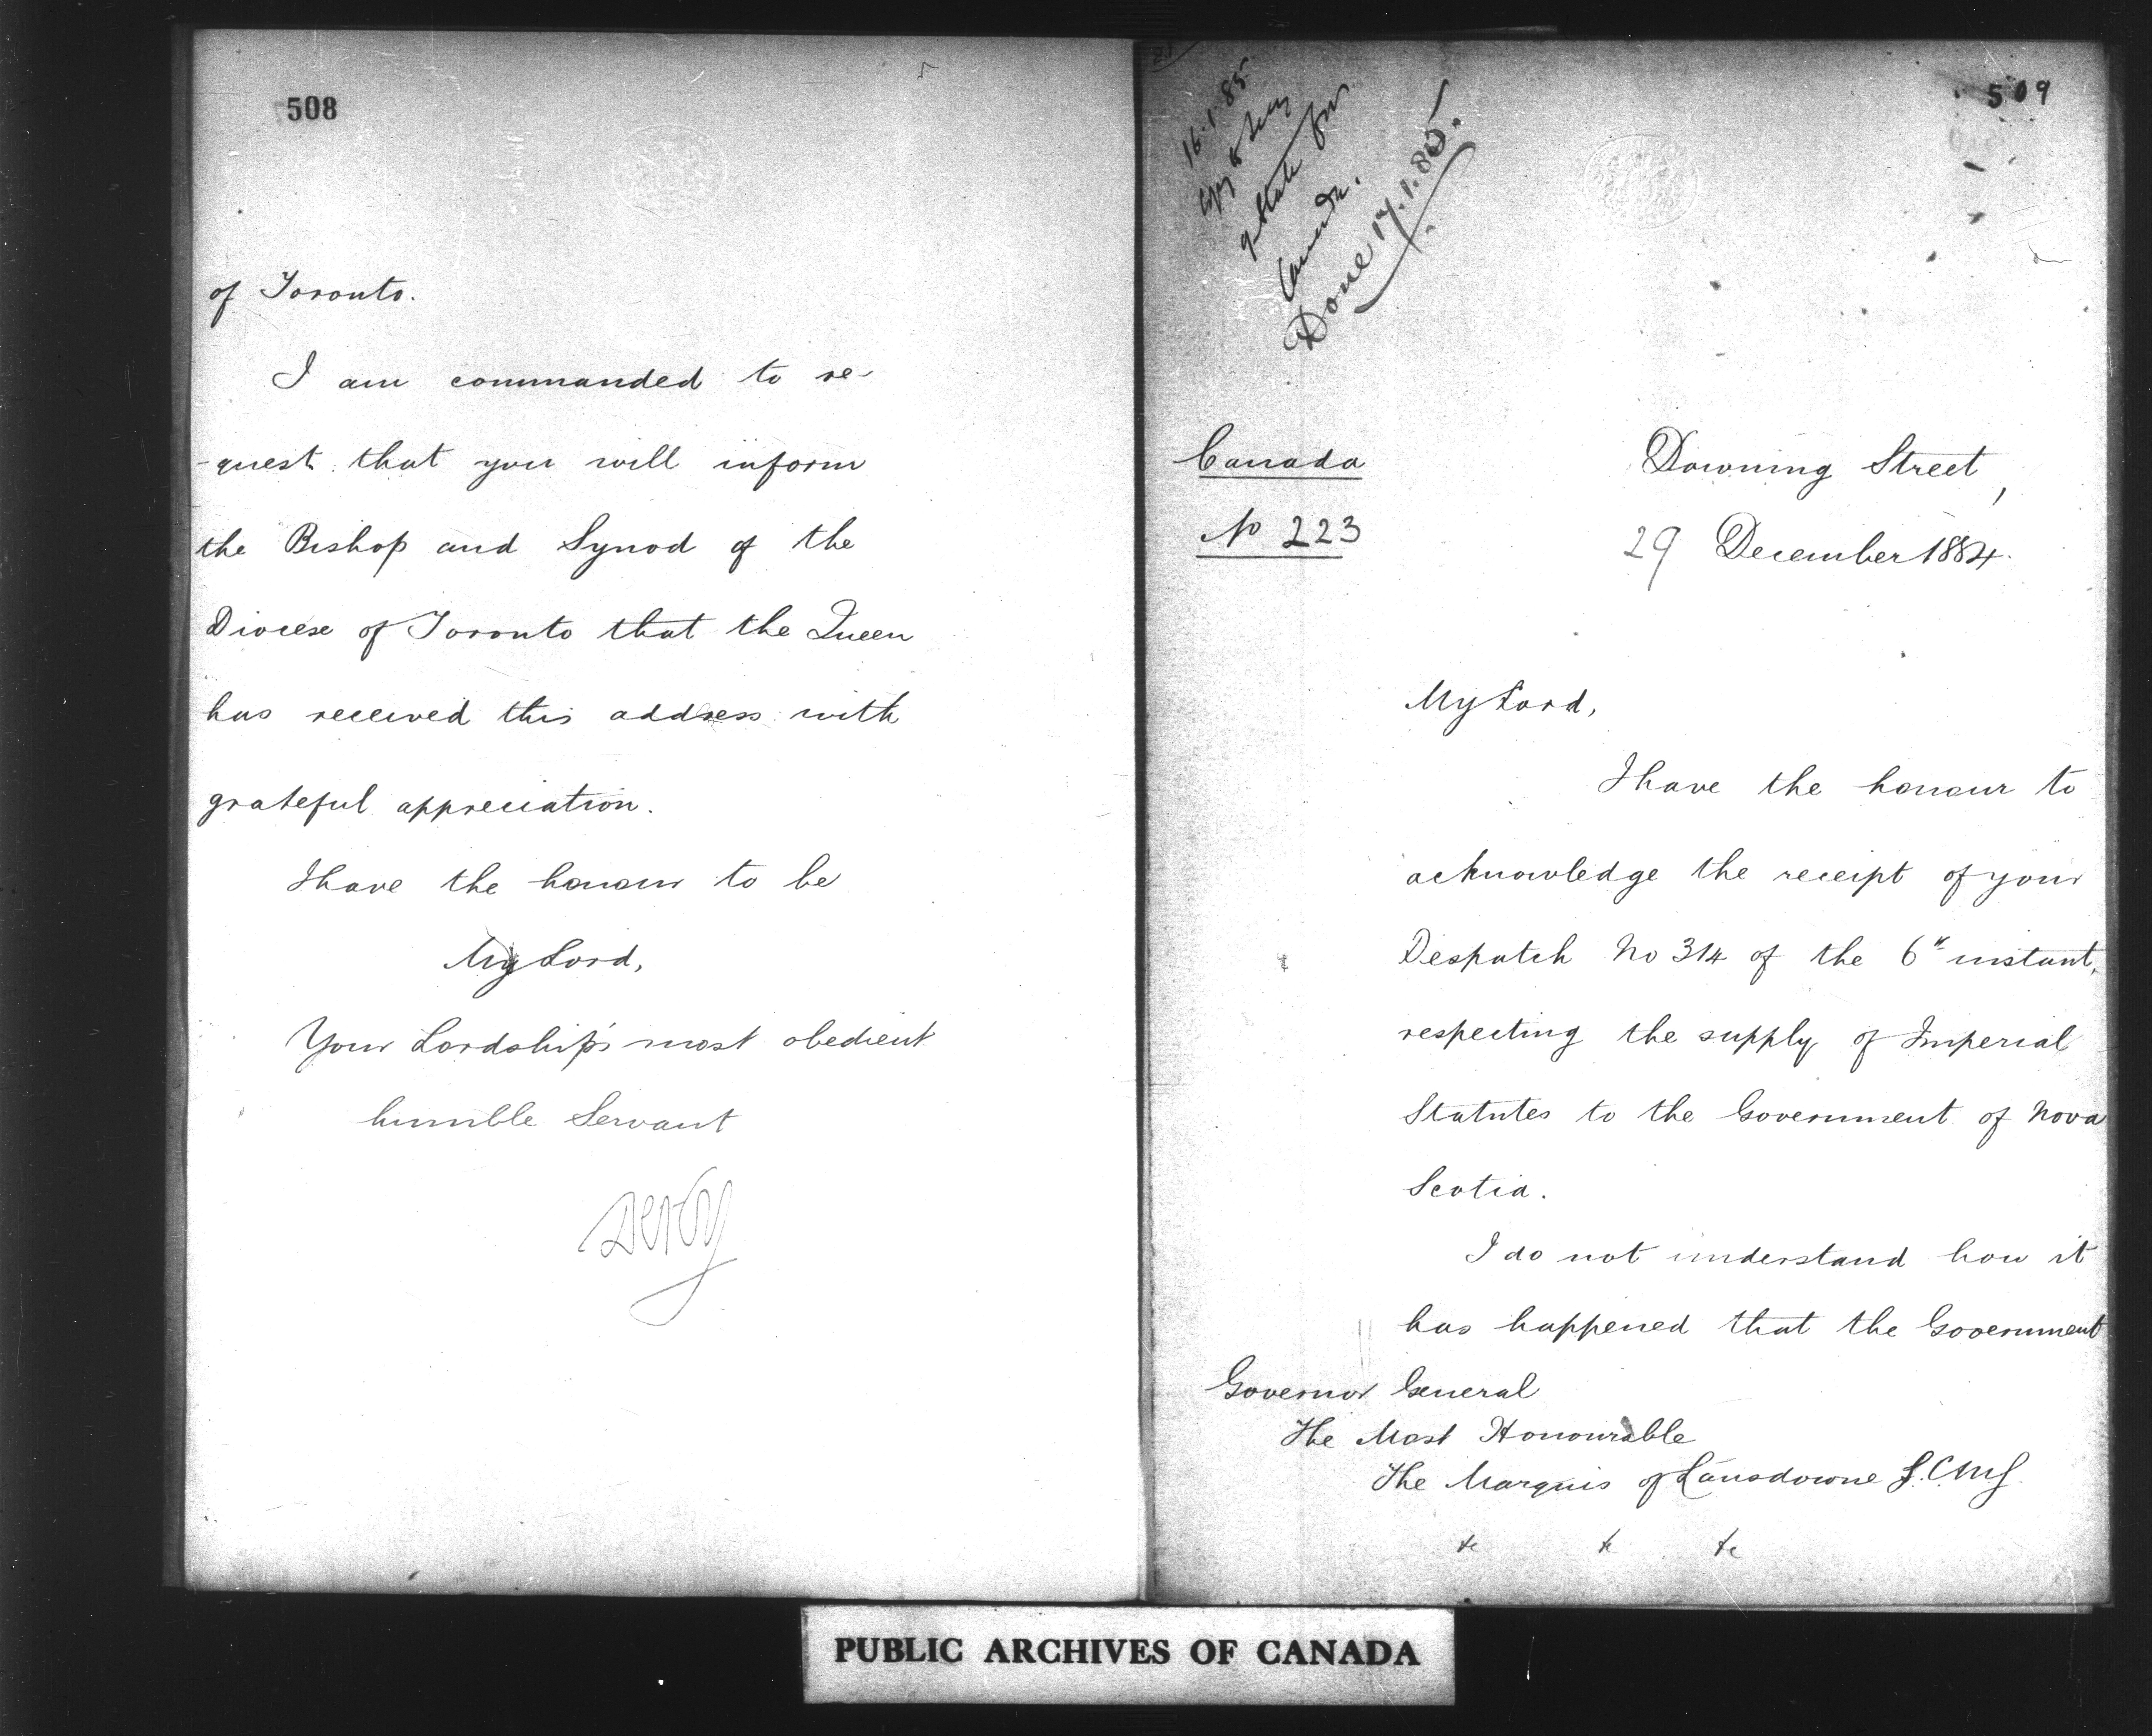 508
of Toronto.
I am commanded to re-
-quest that you will inform
the Bishop and Synod of the
Diocese of Toronto that the Queen
has received this address with
grateful appreciation.
I have the honour to be
My Lord,
Your Lordship's most obedient
humble Servant
Derby
509
16.1.85
Copy to Secy
of State for
Canada.
Done 17.1.85.
Canada
No 223
Downing Street,
29 December 1884.
My Lord,
I have the honour to
acknowledge the receipt of your
Despatch No 314 of the 6th instant,
respecting the supply of Imperial
Statutes to the Government of Nova
Scotia.
I do not understand how it
has happened that the Government
Governor General
The Most Honourable
The Marquis of Lansdowne G.C.M.G.
&c &c &c
PUBLIC ARCHIVES OF CANADA